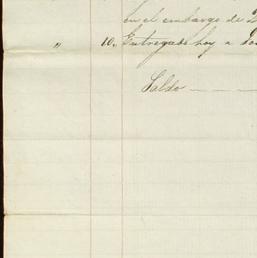 en el embargo de
" 10. Entregado hoy a
Saldo